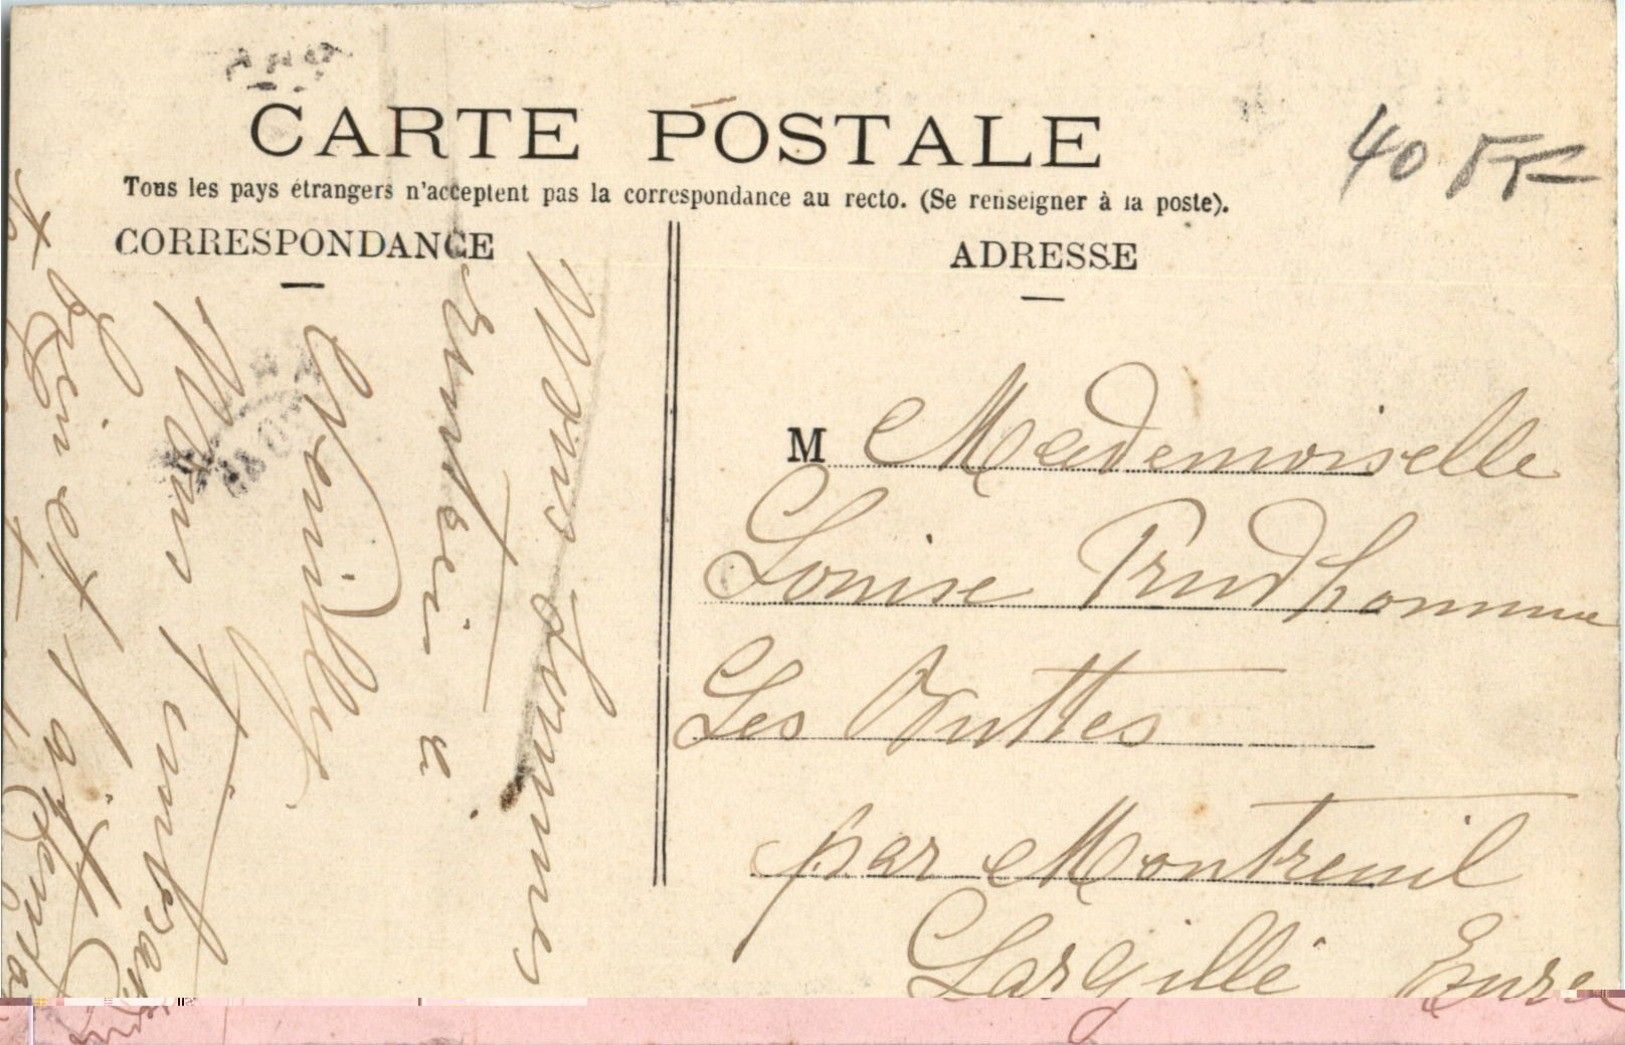 CARTE POSTALE
40 FK
Tous les pays étrangers n'acceptent pas la correspondance au recto. (Se renseigner à la poste).
CORRESPONDANCE
ADRESSE
Nous sommes
Entrée a
Neuilly
Nous t embra
et
M Mademoiselle
Louise Prudhomme
Les Buttes
par Montreuil
Largillé Eure